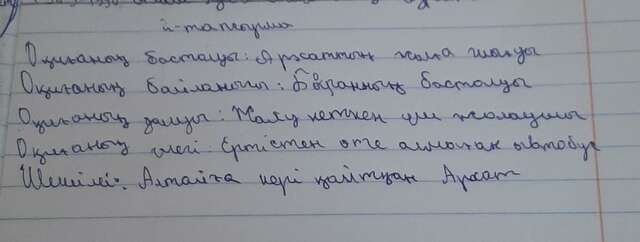 й-тапсырма
Оқиғаның басталуы: Арсаттың жолға шығуы
Оқиғаның байланысы: Боранның басталуы
Оқиғаның дамуы: Жаяу кеткен үш жолаушы
Оқиғаның шегі: Ертістен өте алмаған автобус
Шешімі: Алтайға кері қайтқан Арсат